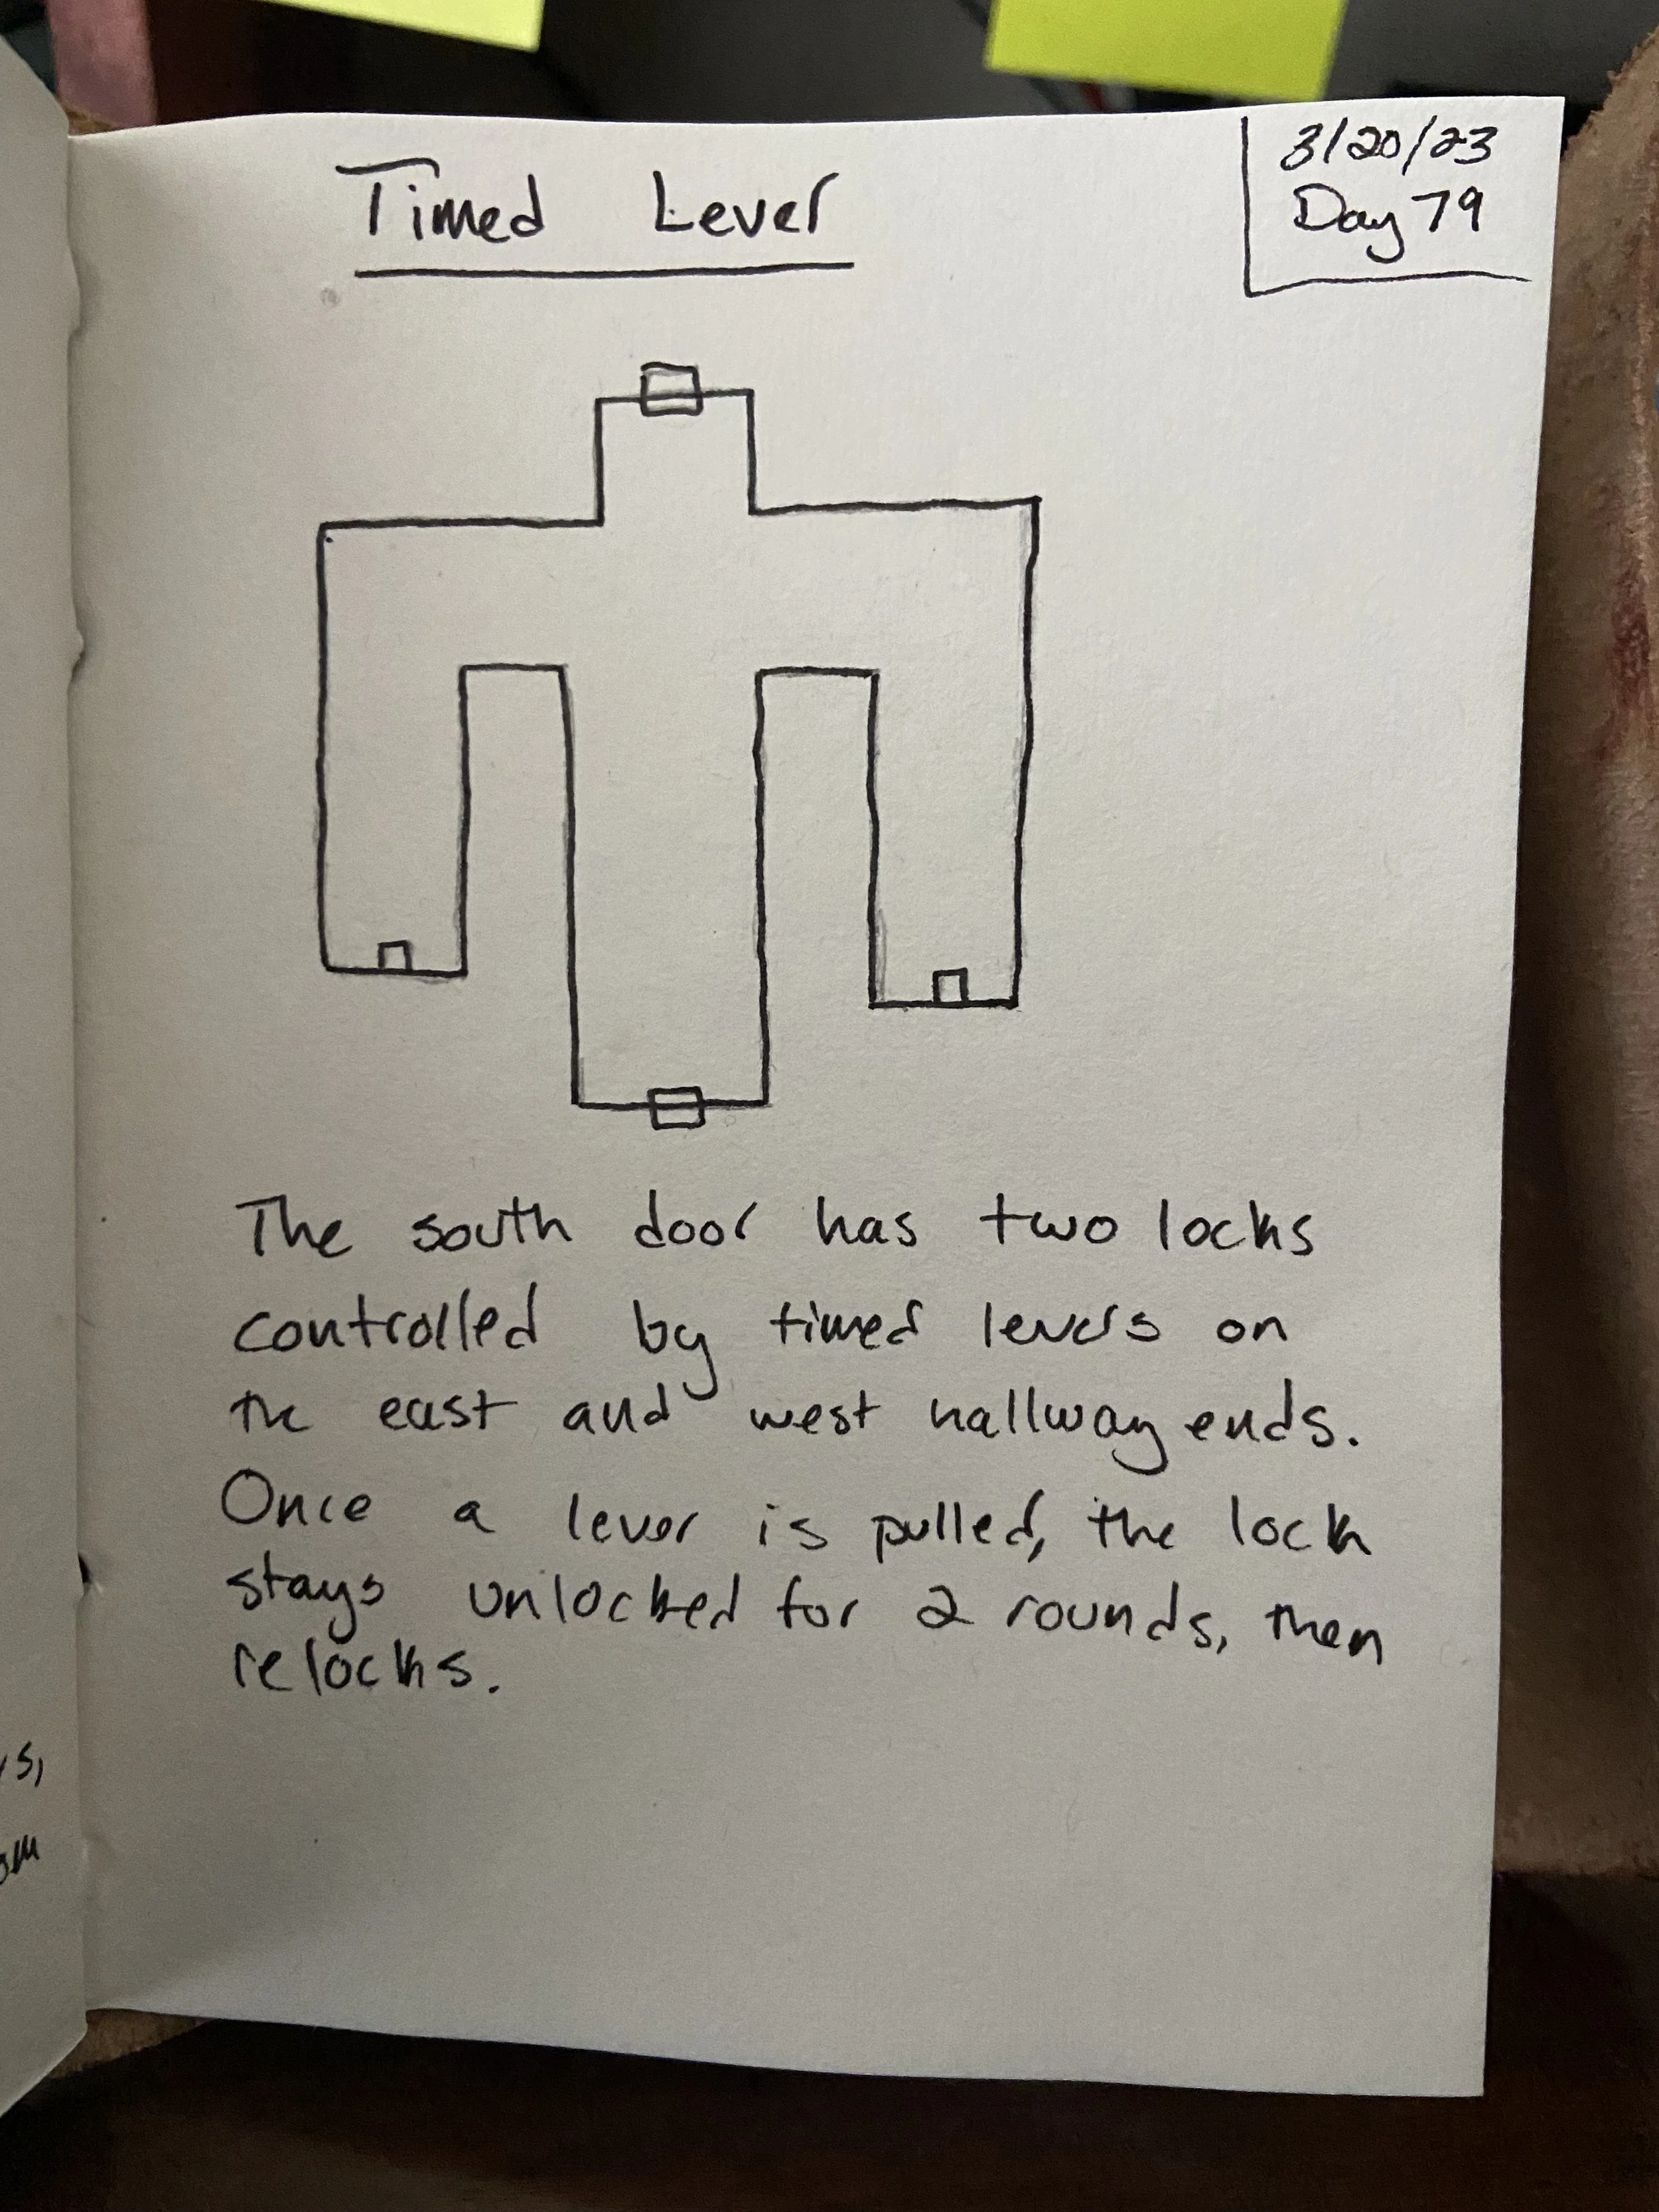 Timed Lever
3/20/23
Day 79
The south door has two locks
controlled by timed levers on
the east and west hallway ends.
Once a lever is pulled, the lock
stays unlocked for 2 rounds, then
relocks.